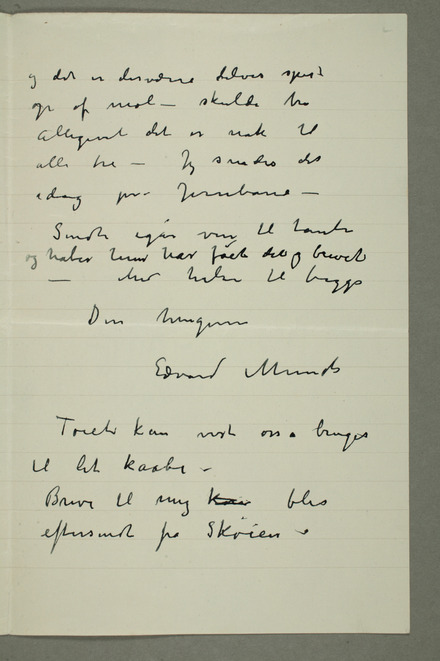 og det er desværre delvis spist
op af møl – skulde tro
alligevel det er nok til
alle tre – Jeg sender det
idag pr. Jernbane –
Sendte igår vin til tante
og haber hun har fået det og brevet
– Med hilsen til begge
Din hengivne
Edvard Munch
Toiet kan vist også bruges
til let kaabe –
Breve til mig blir
eftersendt fra Skøien –